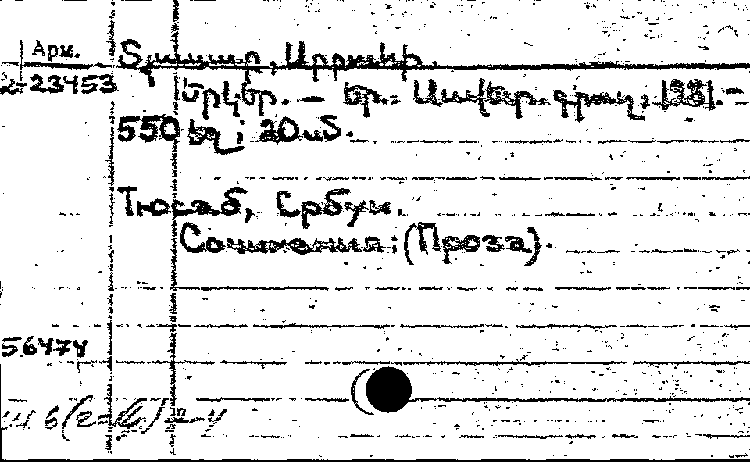 Арм.
Տյուսաբ, Սրբուհի.
2-23453
Երկեր. — Եր.: Սովետ. գրող, 1981.—
550 էջ; 20 սմ.
Тюсаб, Србуи.
Сочинения: (Проза).
56474